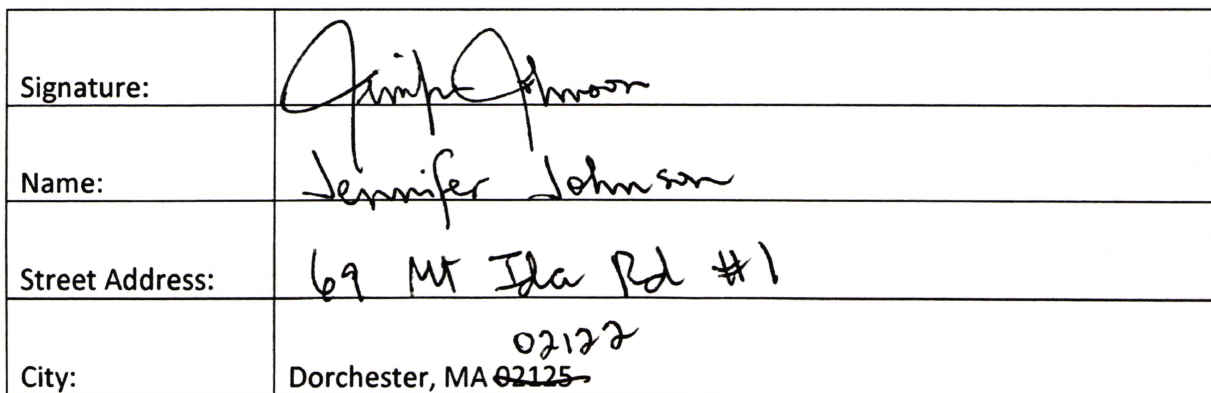 Signature: Jennifer Johnson
Name: Jennifer Johnson
Street Address: 69 Mt Ida Rd #1
02122
City: Dorchester, MA 02125